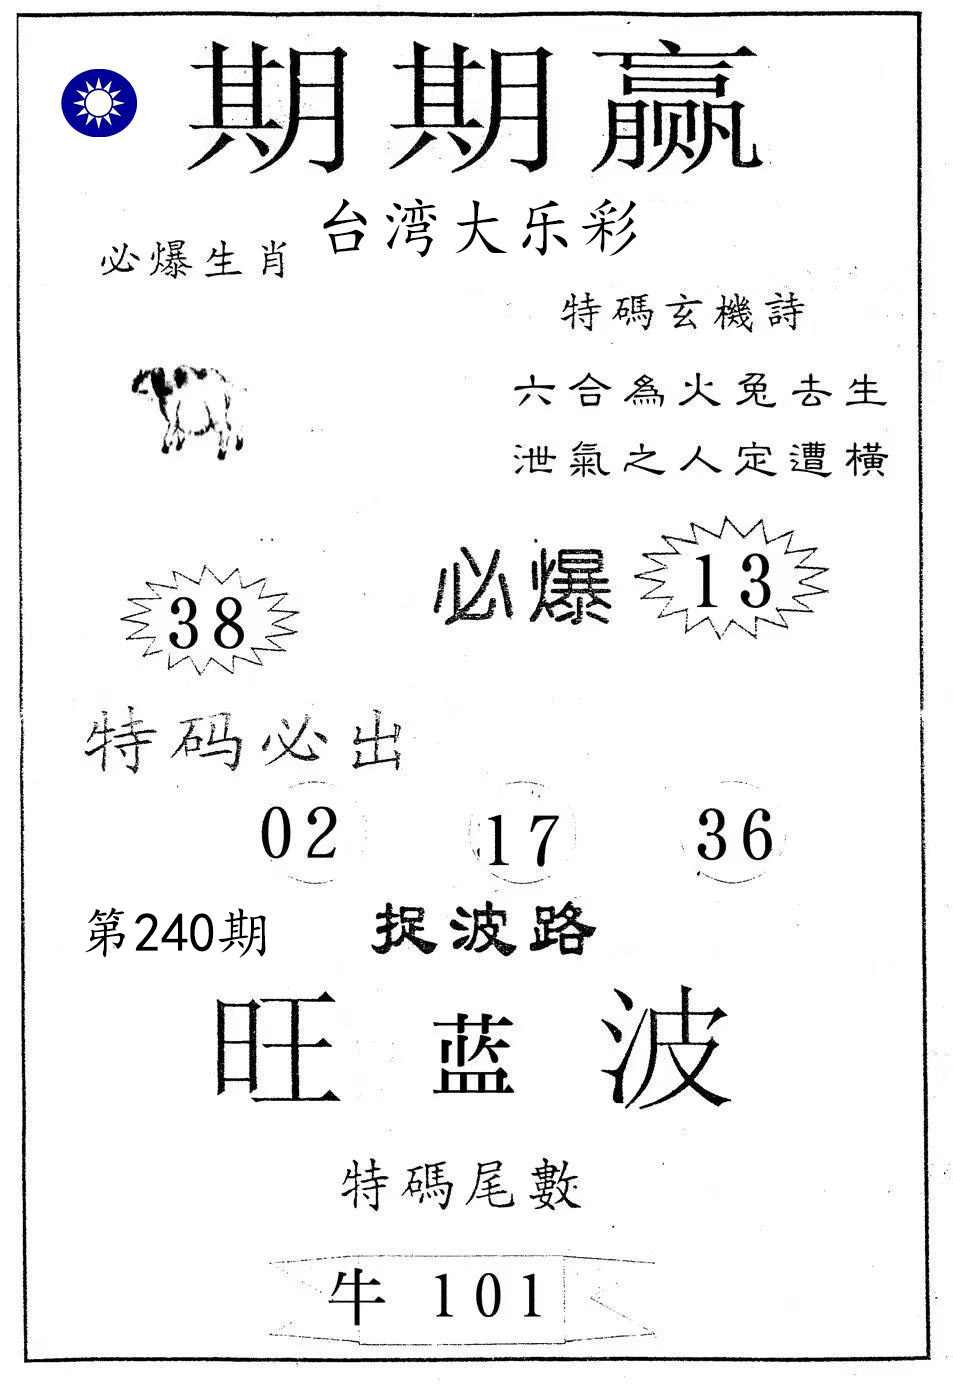 期期赢
台湾大乐彩
必爆生肖
特碼玄機詩
六合為火兔去生
泄氣之人定遭橫
38 必爆 13
特码必出
02 17 36
第240期 捉波路
旺 蓝 波
特碼尾數
牛 101